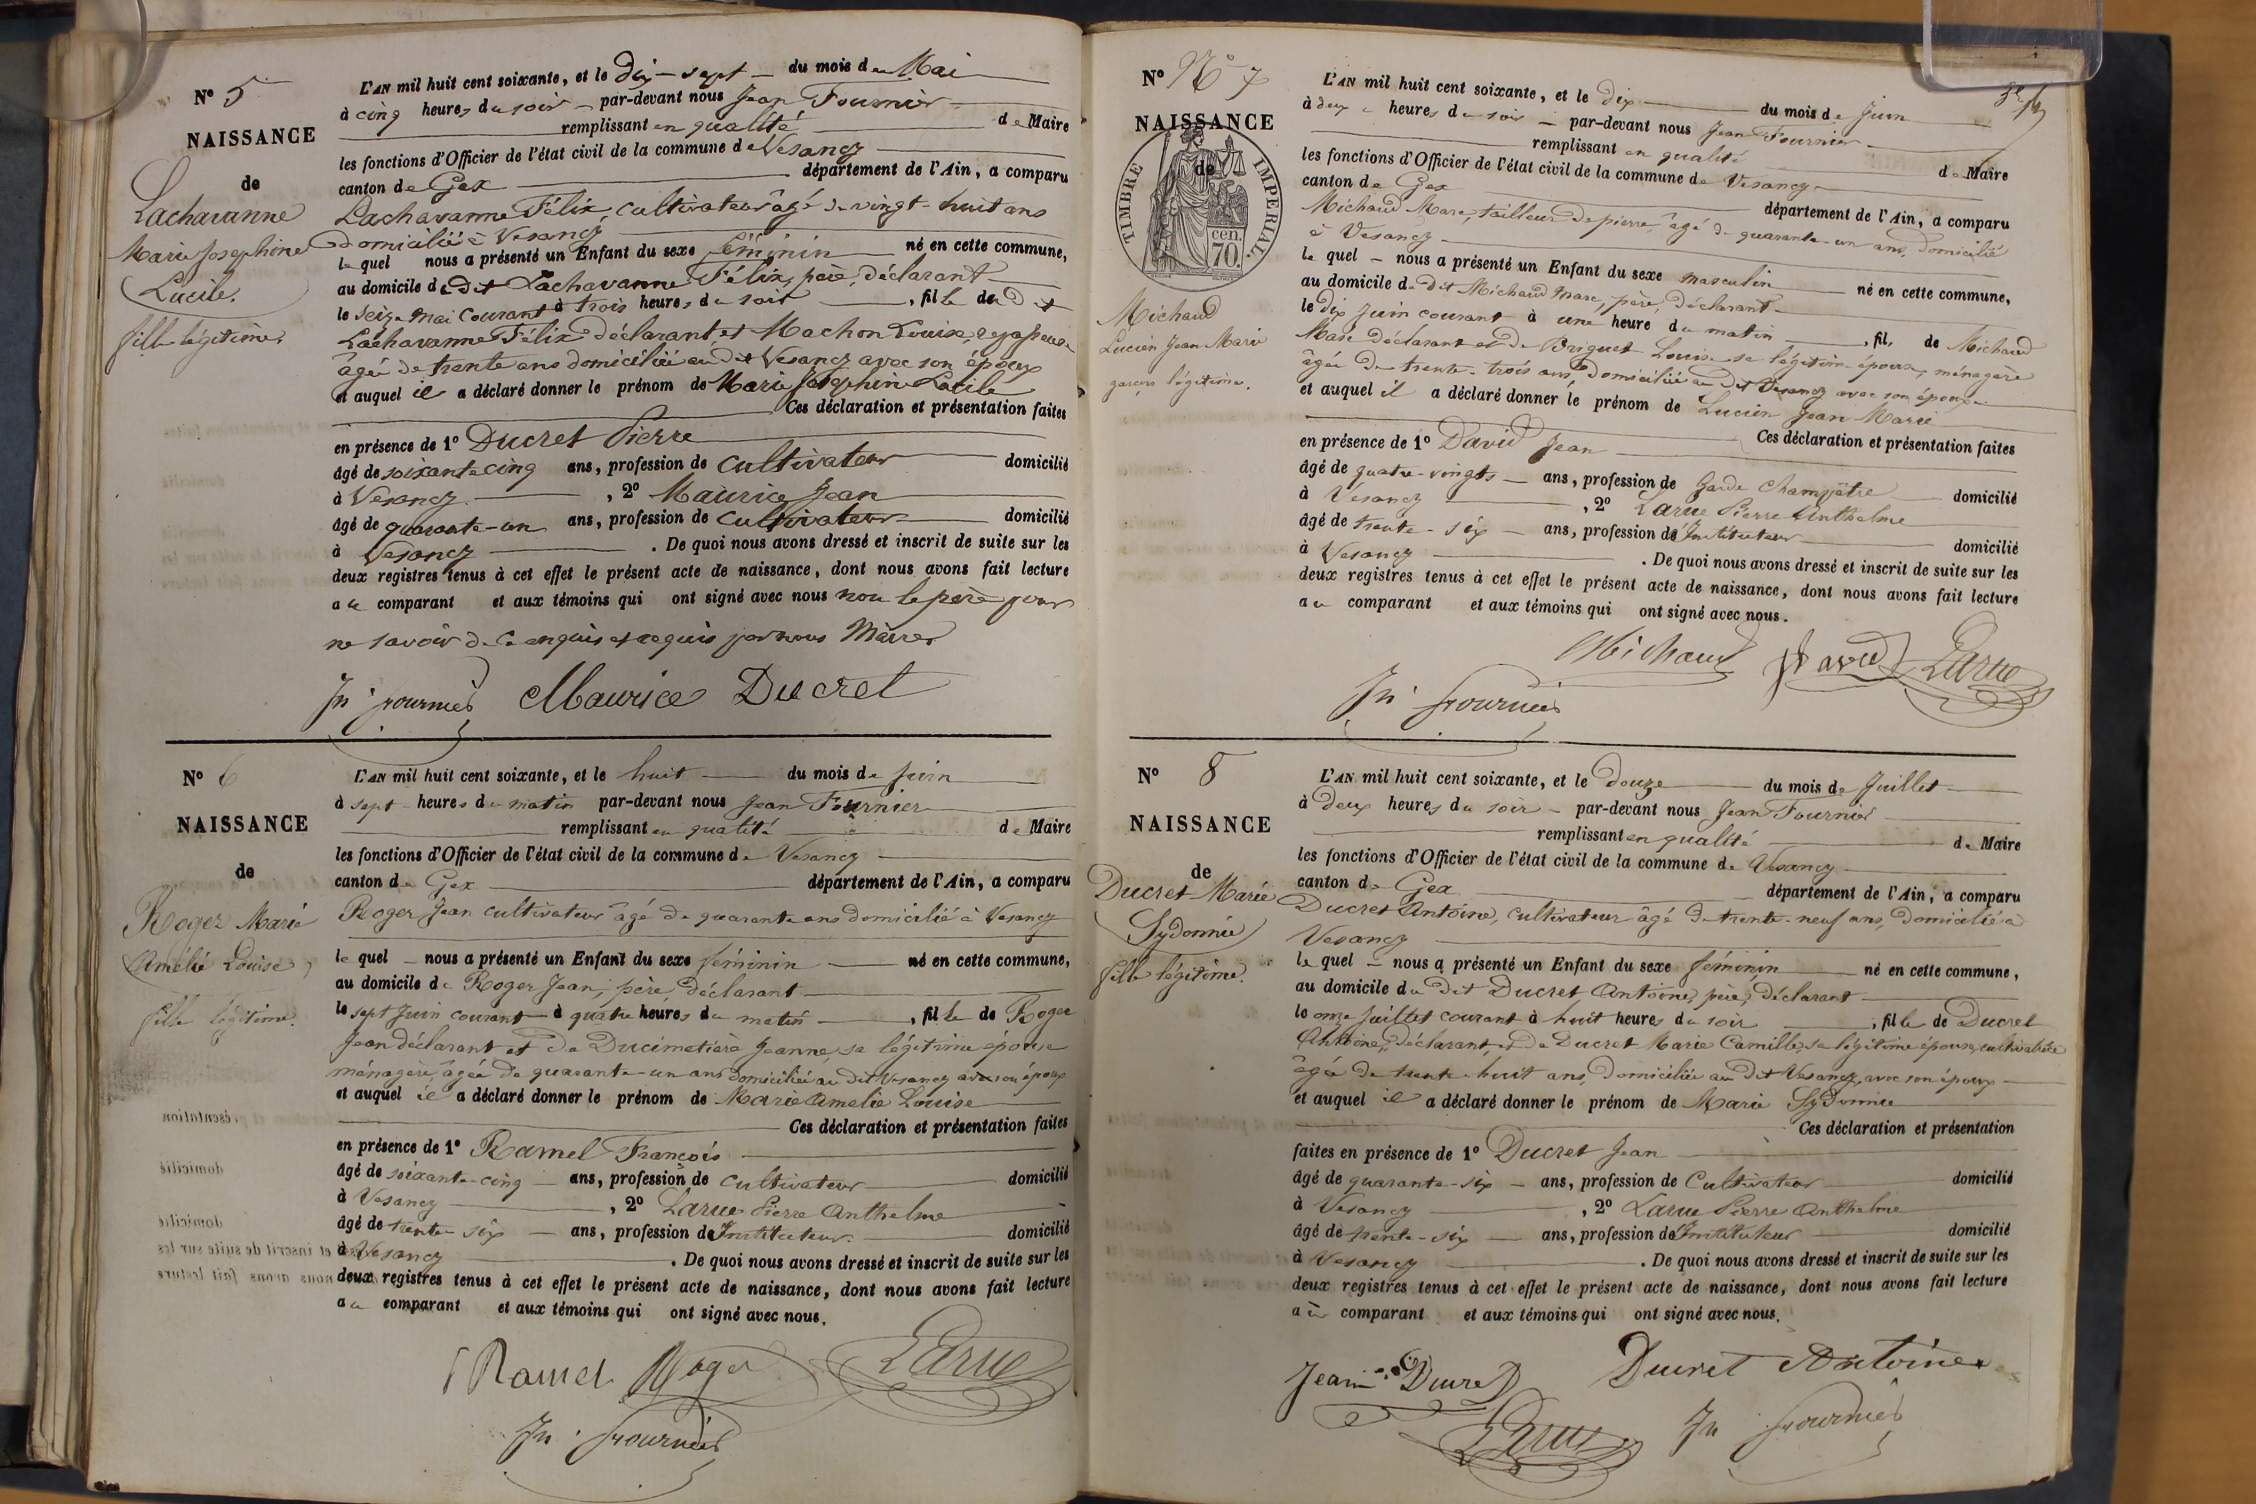 N° 5
NAISSANCE
de
Lachavanne
Marie Josephine
Lucile.
fille légitime.
L'AN mil huit cent soixante, et le dix-sept du mois de Mai
à cinq heures du soir par-devant nous Jean Fournier
remplissant en qualité de Maire
les fonctions d'Officier de l'état civil de la commune de Vesancy
canton de Gex département de l'Ain, a comparu
Lachavanne Félix, cultivateur âgé de vingt-huit ans
domicilié à Vesancy
le quel nous a présenté un Enfant du sexe féminin né en cette commune,
au domicile de dit Lachavanne Félix, père, déclarant
le seize Mai courant à trois heures du soir, fille du dit
Lachavanne Félix déclarant et Machon Louise,
âgée de trente ans domiciliée au dit Vesancy avec son époux
et auquel il a déclaré donner le prénom de Marie Josephine Lucile
Ces déclaration et présentation faites
en présence de 1° Ducret Pierre
âgé de soixante cinq ans, profession de cultivateur domicilié
à Vesancy, 2° Maurice Jean
âgé de quarante-un ans, profession de cultivateur domicilié
à Vesancy. De quoi nous avons dressé et inscrit de suite sur les
deux registres tenus à cet effet le présent acte de naissance, dont nous avons fait lecture
au comparant et aux témoins qui ont signé avec nous non le père pour
ne savoir de ce enquis et requis par nous Maire
Jn fournier Maurice Ducret
N° 6
NAISSANCE
de
Roger Marie
Amélie Louise,
fille légitime.
L'AN mil huit cent soixante, et le huit du mois de Juin
à sept heures du matin par-devant nous Jean Fournier
remplissant en qualité de Maire
les fonctions d'Officier de l'état civil de la commune de Vesancy
canton de Gex département de l'Ain, a comparu
Roger Jean cultivateur âgé de quarante ans domicilié à Vesancy
le quel nous a présenté un Enfant du sexe féminin né en cette commune,
au domicile de Roger Jean, père, déclarant
le sept Juin courant à quatre heures du matin, fille de Roger
Jean déclarant et de Ducimetière Jeanne, sa légitime épouse
ménagère, âgée de quarante-un ans domiciliée au dit Vesancy avec son époux
et auquel il a déclaré donner le prénom de Marie Amélie Louise
Ces déclaration et présentation faites
en présence de 1° Ramel François
âgé de soixante-cinq ans, profession de cultivateur domicilié
à Vesancy, 2° Larue Pierre Anthelme
âgé de trente six ans, profession de Instituteur. domicilié
à Vesancy. De quoi nous avons dressé et inscrit de suite sur les
deux registres tenus à cet effet le présent acte de naissance, dont nous avons fait lecture
au comparant et aux témoins qui ont signé avec nous.
Ramel Roger Larue
Jn. fournier
N° N° 7
NAISSANCE
de
TIMBRE IMPERIAL
70 cen.
Michaud
Lucien Jean Marie
garçon légitime.
L'AN mil huit cent soixante, et le dix du mois de Juin
à deux heures du soir par-devant nous Jean Fournier
remplissant en qualité de Maire
les fonctions d'Officier de l'état civil de la commune de Vesancy
canton de Gex département de l'Ain, a comparu
Michaud Marc, tailleur de pierre âgé de quarante-un ans, domicilié
à Vesancy
le quel nous a présenté un Enfant du sexe masculin né en cette commune,
au domicile de dit Michaud Marc, père, déclarant
le dix Juin courant à une heure du matin, fils de Michaud
Marc déclarant et de Briguet Louise sa légitime épouse, ménagère
âgée de trente-trois ans domiciliée au dit Vesancy avec son époux
et auquel il a déclaré donner le prénom de Lucien Jean Marie
Ces déclaration et présentation faites
en présence de 1° David Jean
âgé de quatre-vingts ans, profession de Garde Champêtre domicilié
à Vesancy, 2° Larue Pierre Anthelme
âgé de trente-six ans, profession de Instituteur domicilié
à Vesancy. De quoi nous avons dressé et inscrit de suite sur les
deux registres tenus à cet effet le présent acte de naissance, dont nous avons fait lecture
au comparant et aux témoins qui ont signé avec nous.
Michaud David Larue
Jn fournier
N° 8
NAISSANCE
de
Ducret Marie
Sydonnie
fille légitime.
L'AN mil huit cent soixante, et le douze du mois de Juillet
à deux heures du soir par-devant nous Jean Fournier
remplissant en qualité de Maire
les fonctions d'Officier de l'état civil de la commune de Vesancy
canton de Gex département de l'Ain, a comparu
Ducret Antoine, cultivateur âgé de trente-neuf ans, domicilié à
Vesancy
le quel nous a présenté un Enfant du sexe féminin né en cette commune,
au domicile du dit Ducret Antoine, père, déclarant
le onze Juillet courant à huit heures du soir, fille de Ducret
Antoine, déclarant, et de Ducret Marie Camille, sa légitime épouse, cultivatrice
âgée de trente-huit ans, domiciliée au dit Vesancy, avec son époux
et auquel il a déclaré donner le prénom de Marie Sydonnie
Ces déclaration et présentation
faites en présence de 1° Ducret Jean
âgé de quarante-six ans, profession de Cultivateur domicilié
à Vesancy, 2° Larue Pierre Anthelme
âgé de trente-six ans, profession de Instituteur domicilié
à Vesancy. De quoi nous avons dressé et inscrit de suite sur les
deux registres tenus à cet effet le présent acte de naissance, dont nous avons fait lecture
au comparant et aux témoins qui ont signé avec nous.
Jean Ducret Ducret Antoine
Larue Jn fournier